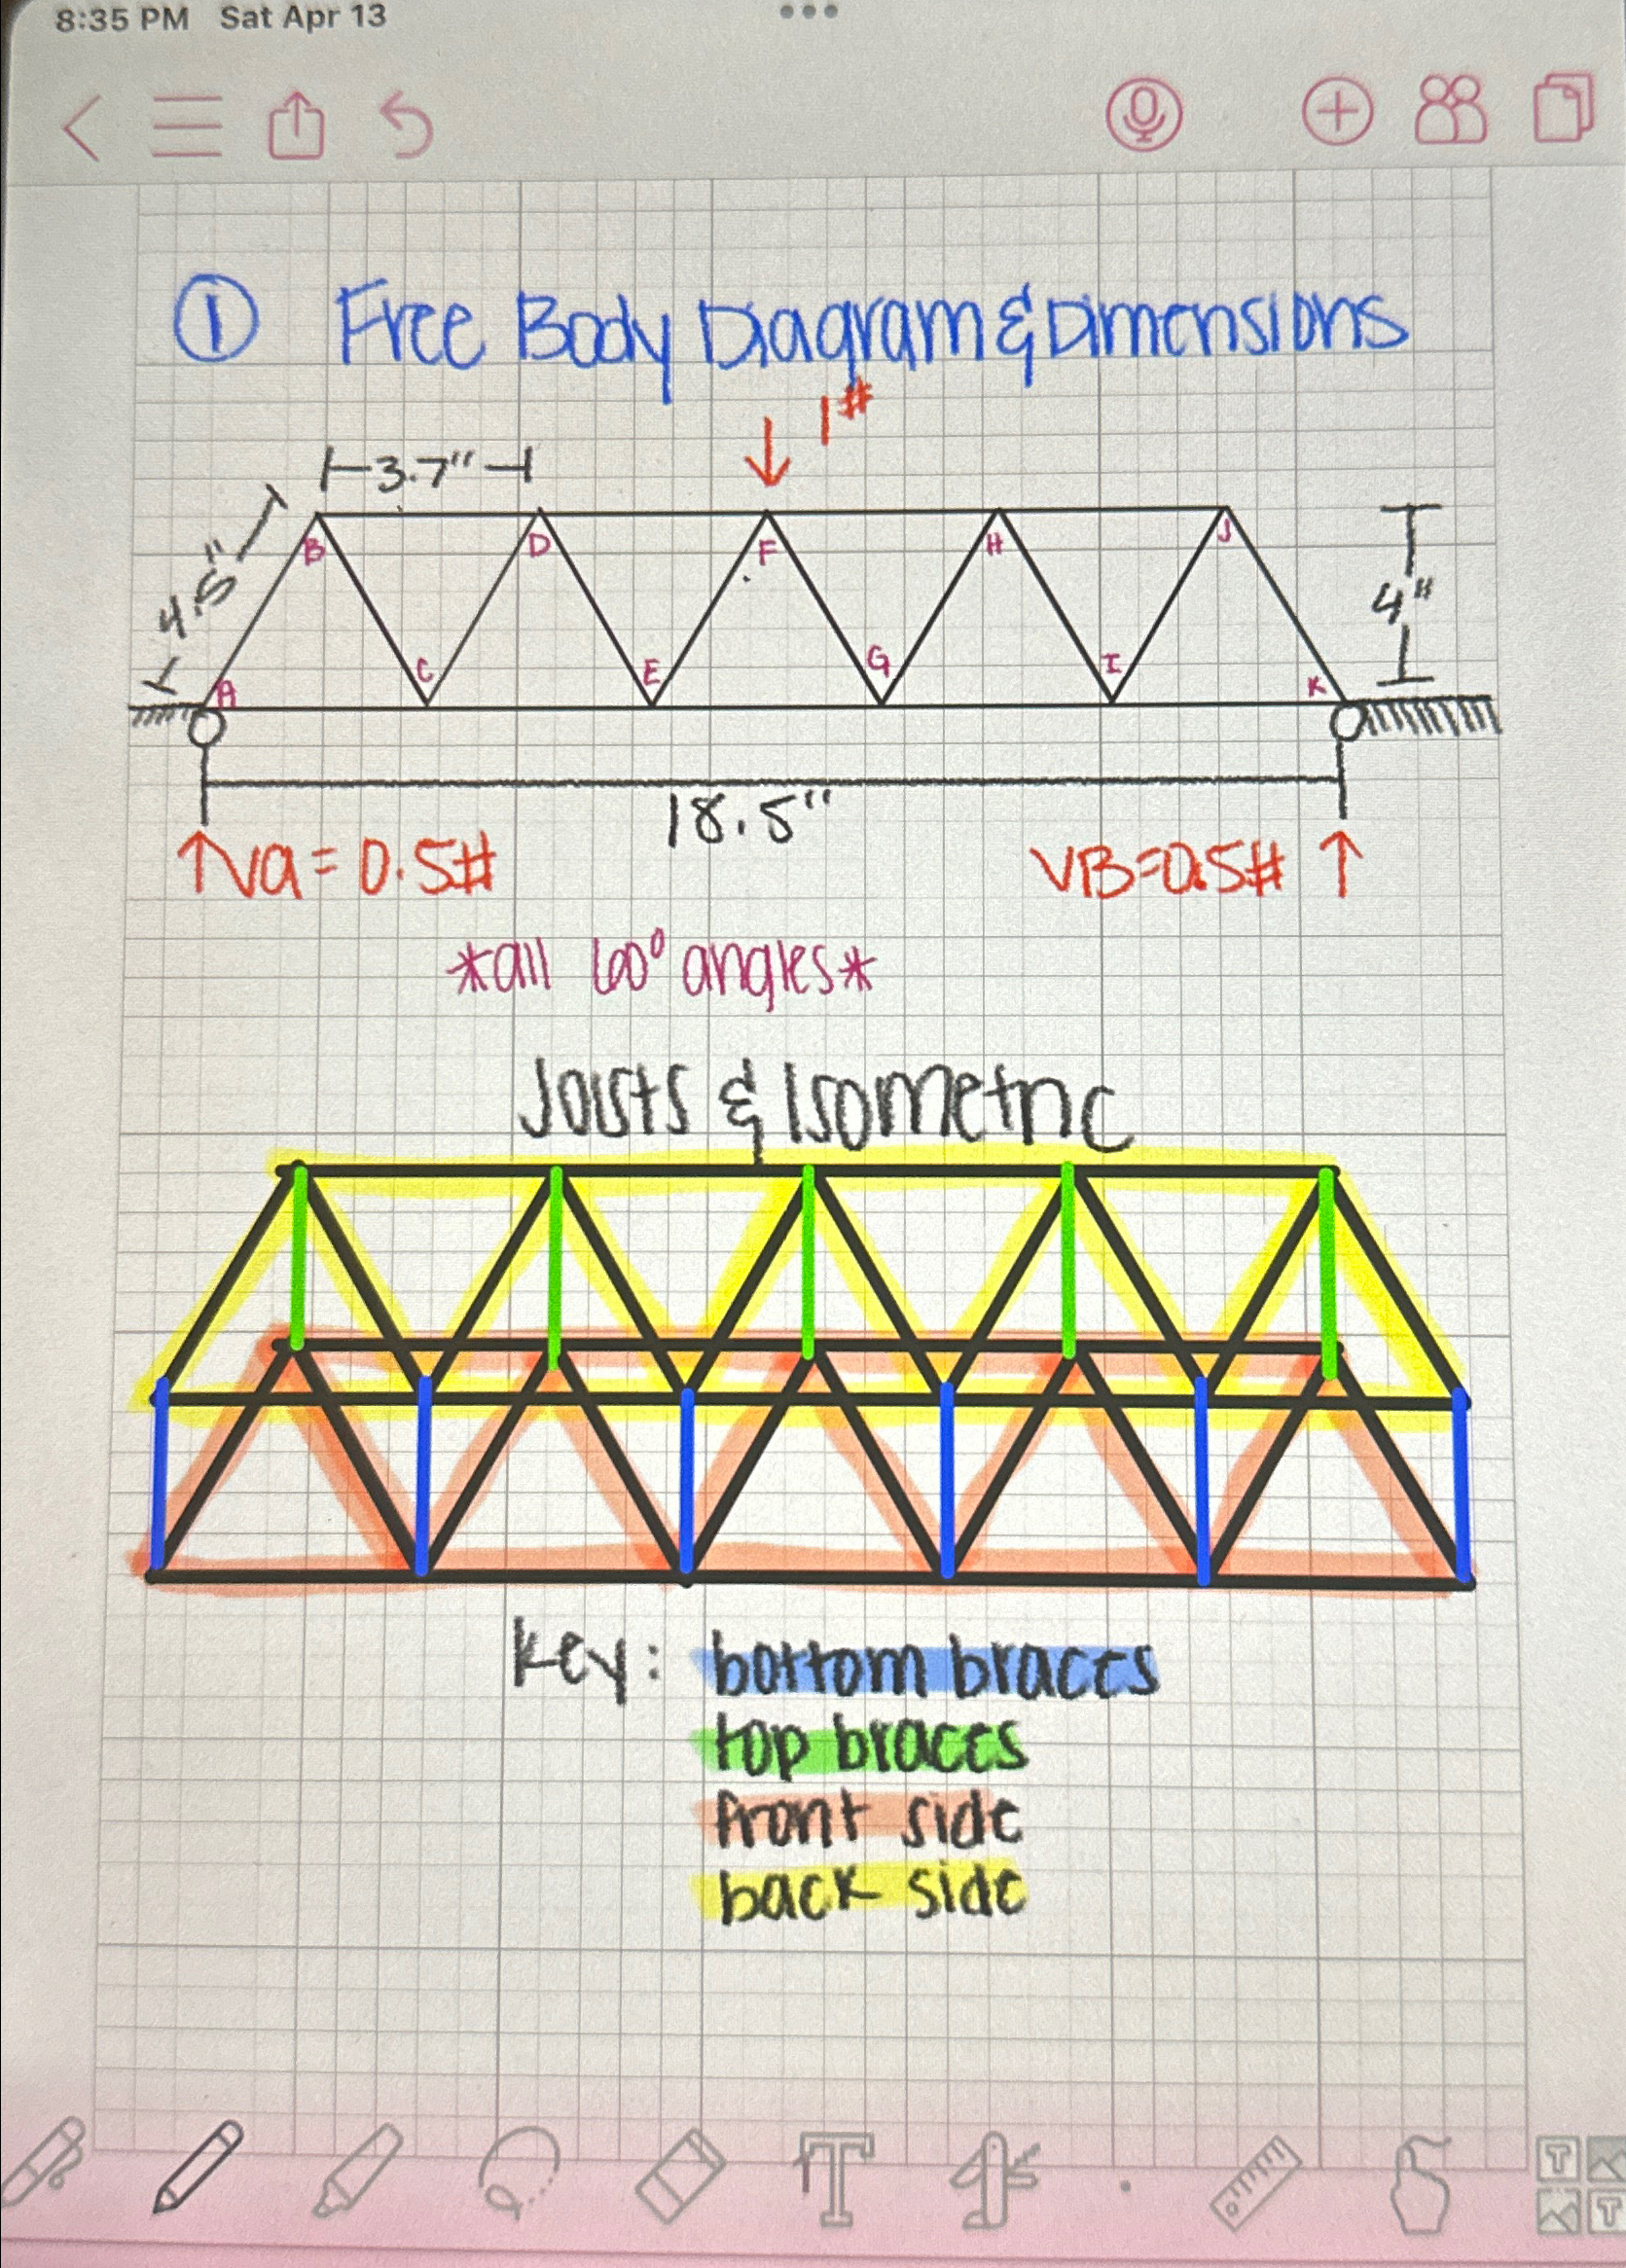 8:35 PM Sat Apr 13
① Free Body Diagram & Dimensions
1#
3.7"
4.5"
B D F H J
4"
A C E G I K
18.5"
↑Va = 0.5# VB=0.5# ↑
*all 60° angles*
Joists & Isometric
key: bottom braces
top braces
front side
back side